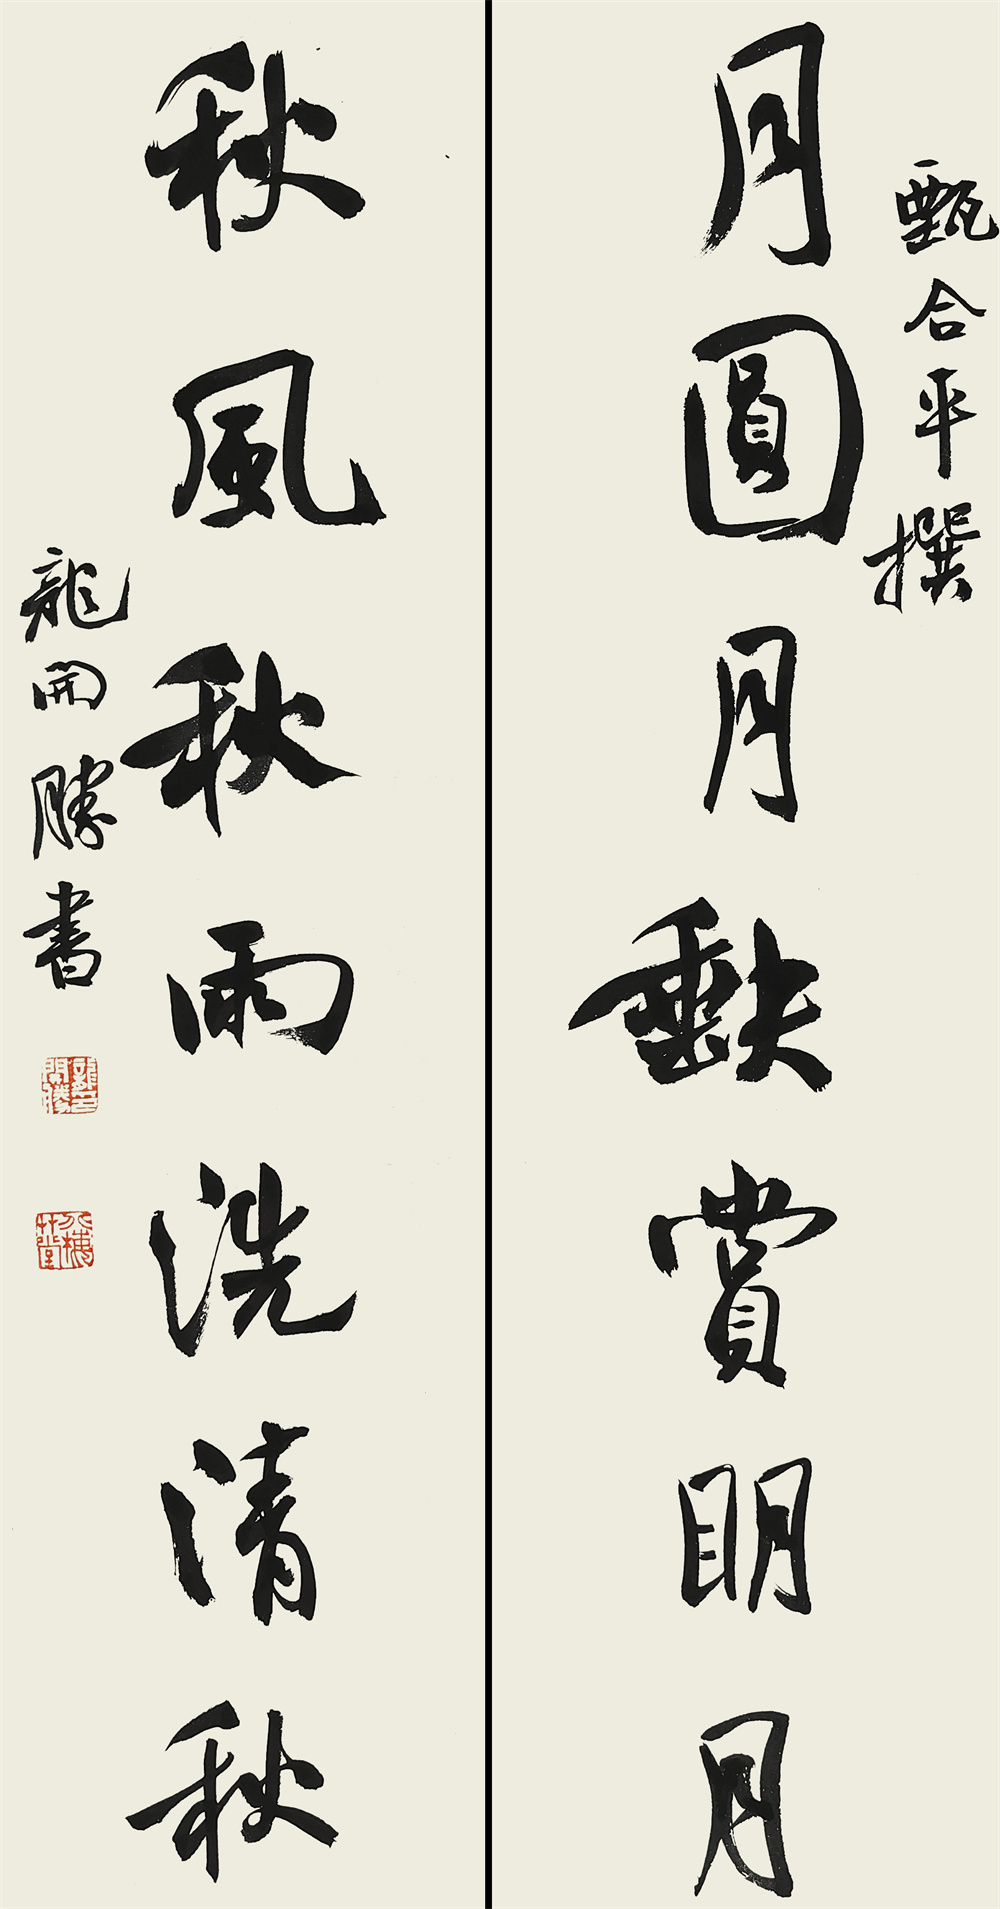 甄合平撰
月圓月缺賞明月
秋風秋雨洗清秋
龍開勝書